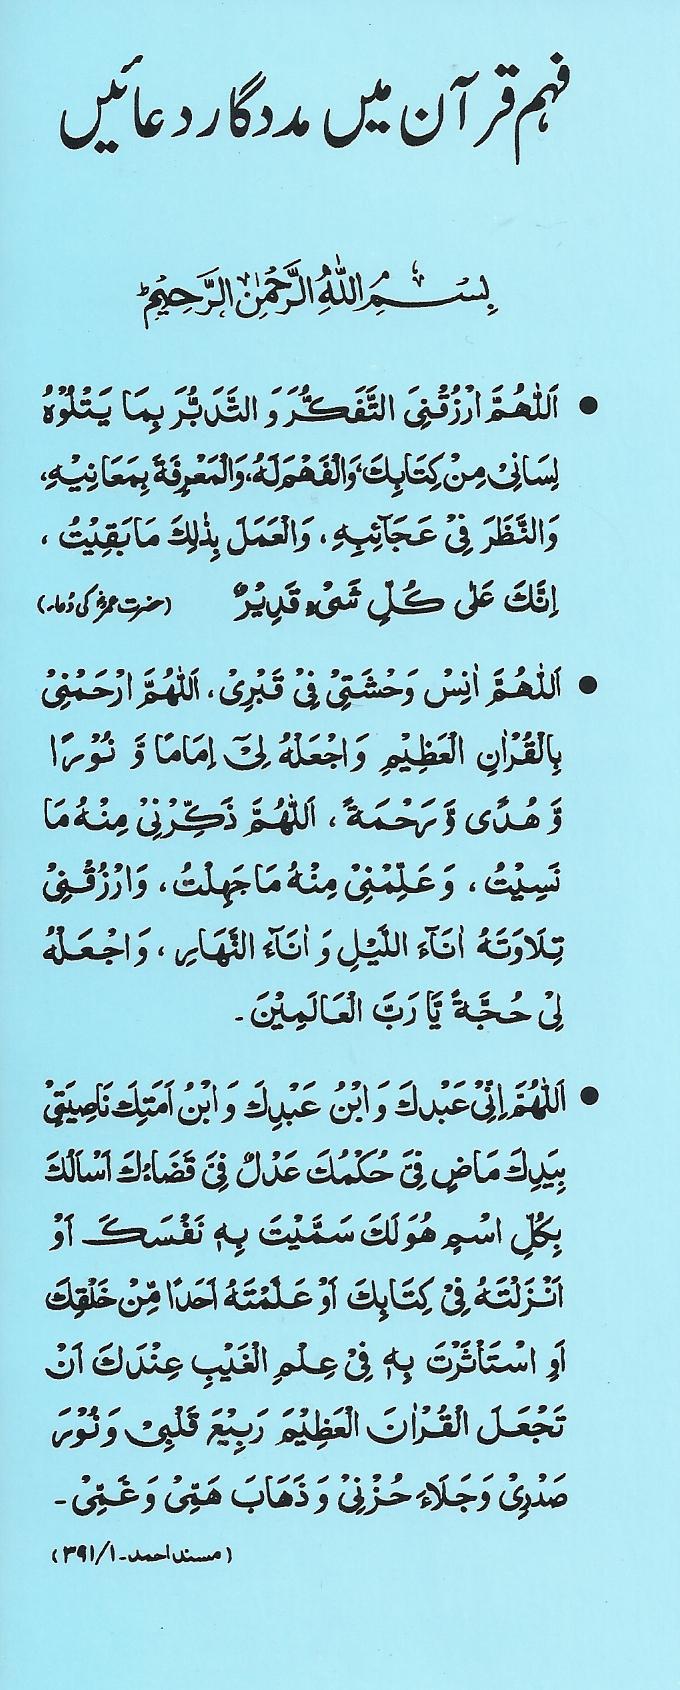 فہم قرآن میں مددگار دعائیں
بِسْمِ اللّٰهِ الرَّحْمٰنِ الرَّحِيْمِ ؕ
● اَللّٰهُمَّ ارْزُقْنِیَ التَّفَكُّرَ وَ التَّدَبُّرَ بِمَا يَتْلُوْهُ
لِسَانِیْ مِنْ كِتَابِكَ، وَالْفَهْمَ لَهُ، وَالْمَعْرِفَةَ بِمَعَانِيْهِ،
وَالنَّظَرَ فِیْ عَجَآئِبِهٖ، وَالْعَمَلَ بِذٰلِكَ مَا بَقِيْتُ ،
اِنَّكَ عَلٰى كُلِّ شَیْءٍ قَدِيْرٌ (حضرت عمرؓ کی دُعاء)
● اَللّٰهُمَّ اٰنِسْ وَحْشَتِیْ فِیْ قَبْرِیْ، اَللّٰهُمَّ ارْحَمْنِیْ
بِالْقُرْاٰنِ الْعَظِيْمِ وَاجْعَلْهُ لِیْٓ اِمَامًا وَّ نُوْرًا
وَّ هُدًى وَّ رَحْمَةً، اَللّٰهُمَّ ذَكِّرْنِیْ مِنْهُ مَا
نَسِيْتُ، وَ عَلِّمْنِیْ مِنْهُ مَا جَهِلْتُ، وَارْزُقْنِیْ
تِلَاوَتَهُ اٰنَآءَ اللَّيْلِ وَ اٰنَآءَ النَّهَارِ، وَاجْعَلْهُ
لِیْ حُجَّةً يَّا رَبَّ الْعَالَمِيْنَ۔
● اَللّٰهُمَّ اِنِّیْ عَبْدُكَ وَ ابْنُ عَبْدِكَ وَ ابْنُ اَمَتِكَ نَاصِيَتِیْ
بِيَدِكَ مَاضٍ فِیَّ حُكْمُكَ عَدْلٌ فِیَّ قَضَاءُكَ اَسْاَلُكَ
بِكُلِّ اسْمٍ هُوَ لَكَ سَمَّيْتَ بِهٖ نَفْسَكَ اَوْ
اَنْزَلْتَهُ فِیْ كِتَابِكَ اَوْ عَلَّمْتَهُ اَحَدًا مِّنْ خَلْقِكَ
اَوِ اسْتَاْثَرْتَ بِهٖ فِیْ عِلْمِ الْغَيْبِ عِنْدَكَ اَنْ
تَجْعَلَ الْقُرْاٰنَ الْعَظِيْمَ رَبِيْعَ قَلْبِیْ وَ نُوْرَ
صَدْرِیْ وَ جَلَاءَ حُزْنِیْ وَ ذَهَابَ هَمِّیْ وَ غَمِّیْ۔
(مسند احمد۔ ۳۹۱/۱)